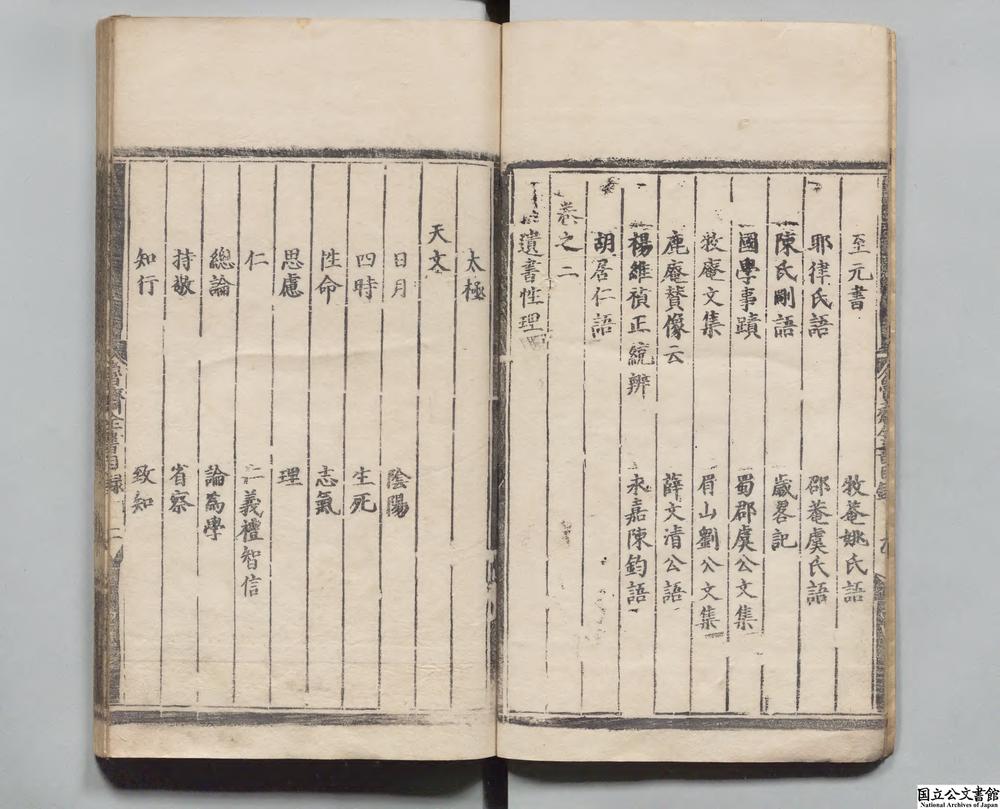 至元書 牧菴姚氏語
耶律氏語 邵菴虞氏語
陳氏剛語 歲畧記
國學事蹟 蜀郡虞公文集
牧庵文集 眉山劉公文集
鹿庵賛像云 薛文清公語
楊維禎正統辨 永嘉陳鈞語
胡居仁語
卷之二
遺書性理
太極
天文
日月 陰陽
四時 生死
性命 志氣
思慮 理
仁 仁義禮智信
總論 論為學
持敬 省察
知行 致知
魯齋全書目録 二
国立公文書館
National Archives of Japan